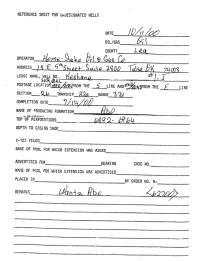 REFERENCE SHEET FOR UNDESIGNATED WELLS
DATE 10/9/00
OIL/GAS Oil
COUNTY Lea
OPERATOR Home-Stake Oil & Gas Co
ADDRESS 15 E 5th Street Suite 2800 Tulsa OK 74103
LEASE NAME, WELL NO. #1
FOOTAGE LOCATION FROM THE S LINE AND FROM THE E LINE
SECTION 26 TOWNSHIP RANGE
COMPLETION DATE 7/14/00
NAME OF PRODUCING FORMATION Abo
TOP OF PERFORATIONS
DEPTH TO CASING SHOE
C-123 FILED
NAME OF POOL FOR WHICH EXTENSION WAS ASKED
ADVERTISED FOR HEARING CASE NO.
NAME OF POOL FOR WHICH EXTENSION WAS ADVERTISED
PLACED IN BY ORDER NO. R-
REMARKS Wantz Abo <62700>